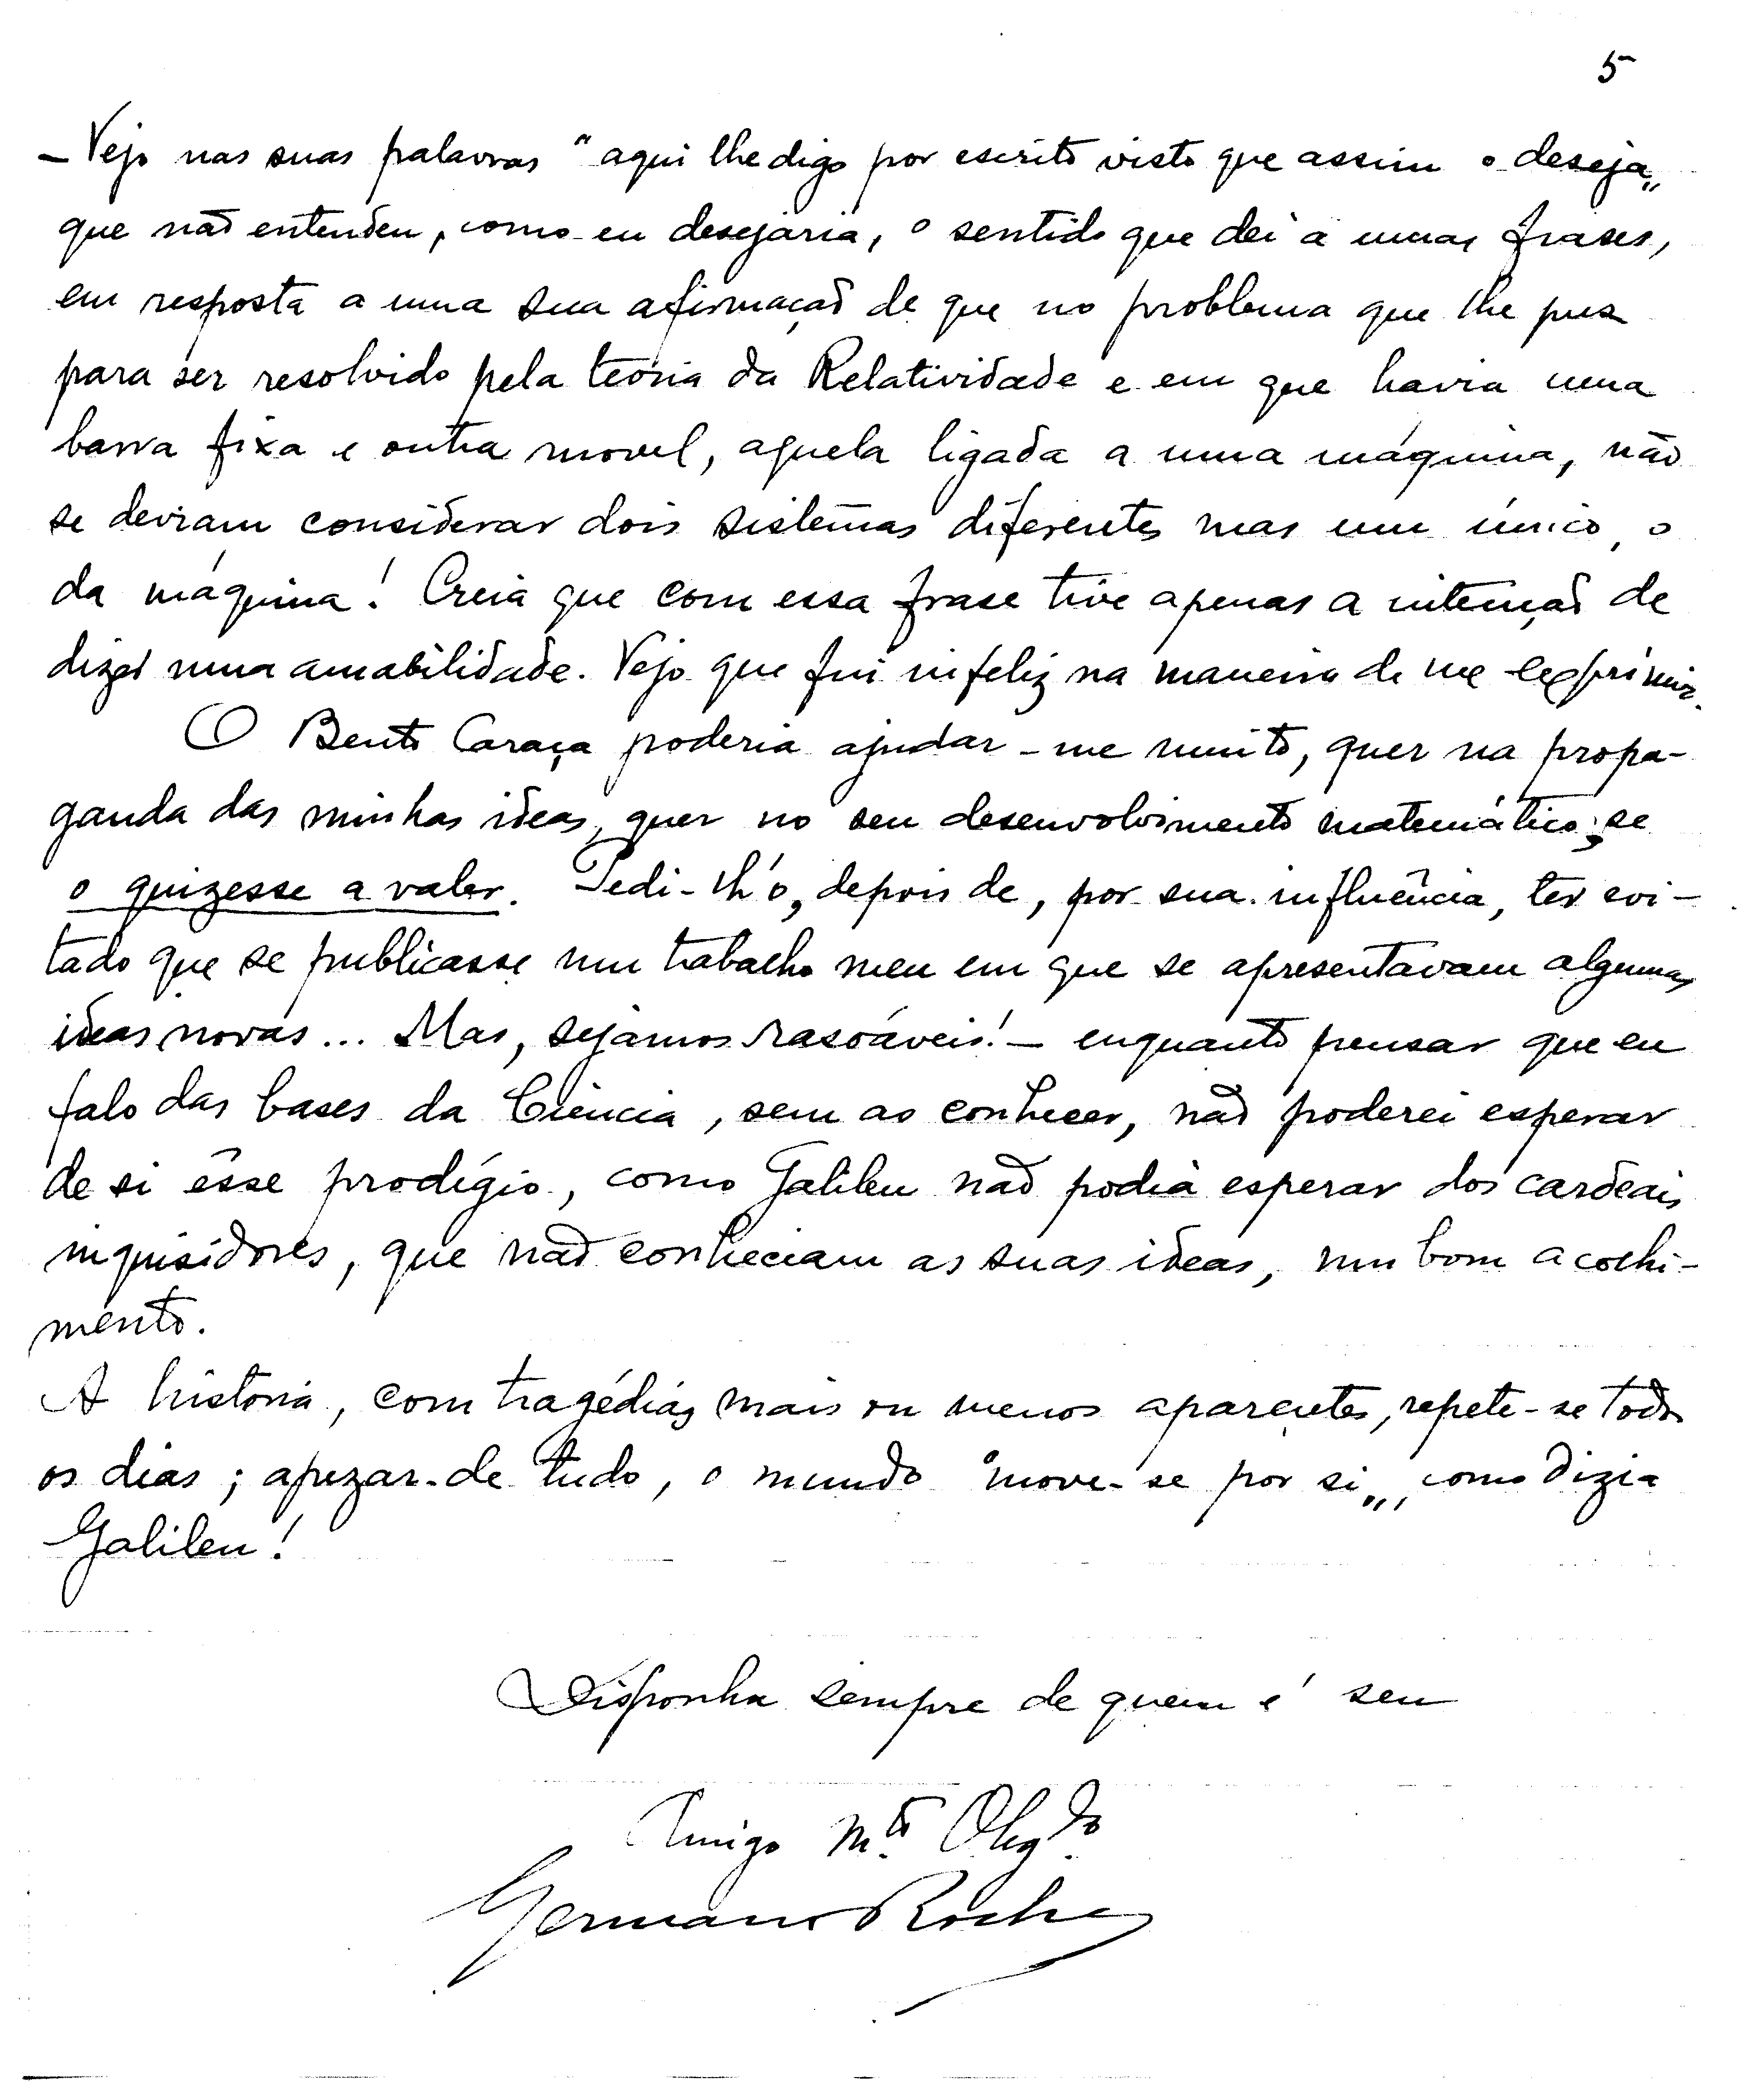 5
– Vejo nas suas palavras "aqui lhe digo por escrito visto que assim o deseja„
que não entendeu, como eu desejaria, o sentido que dei a umas frases,
em resposta a uma sua afirmação de que no problema que lhe pus
para ser resolvido pela teoria da Relatividade e em que havia uma
barra fixa e outra movel, aquela ligada a uma máquina, não
se deviam considerar dois sistemas diferentes mas um único, o
da máquina! Creia que com essa frase tive apenas a intenção de
dizer uma amabilidade. Vejo que fui infeliz na maneira de me exprimir.
O Bento Caraça poderia ajudar-me muito, quer na propa-
ganda das minhas ideas, quer no seu desenvolvimento matemático, se
o quizesse a valer. Pedi-lh'o, depois de, por sua influência, ter evi-
tado que se publicasse um trabalho meu em que se apresentavam algumas
ideas novas... Mas, sejamos rasoáveis! – enquanto pensar que eu
falo das bases da Ciência, sem as conhecer, não poderei esperar
de si êsse prodígio, como Galileu não podia esperar dos cardeais
inquisidores, que não conheciam as suas ideas, um bom acolhi-
mento.
A história, com tragédias mais ou menos aparentes, repete-se todos
os dias; apezar de tudo, o mundo "move-se por si„, como dizia
Galileu!
Disponha sempre de quem é seu
Amigo Mto. Obgdo.
Germano Rocha